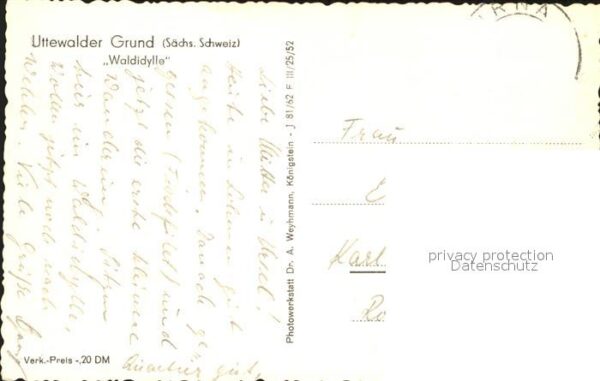 Uttewalder Grund (Sächs. Schweiz)
„Waldidylle"
Liebe Mutter u.
Heute in Lohmen gut
angekommen, danach ge-
gessen und
jetzt die erste kleine
Wanderung. Sitzen
hier im Waldidylle,
wollen jetzt noch nach
Wehlen. Viele Grüße
Quartier gut.
Verk.-Preis -,20 DM
Photowerkstatt Dr. A. Weyhmann, Königstein - J 81/62 F III/25/52
PIRNA
Frau
E
Karl
Ro
privacy protection
Datenschutz